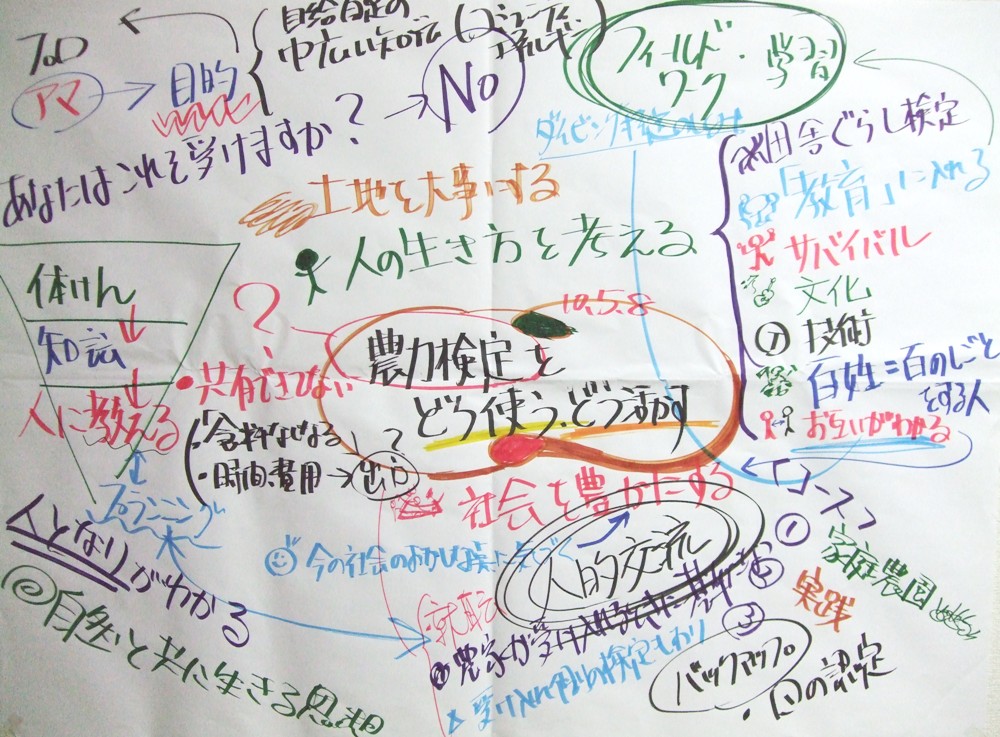 プロ
アマ
目的
自給自足の
中広い知シキ
No
あなたはこれを受けますか?
フィールド
ワーク・学習
土地を大事にする
人の生き方を考える
10.5.8
農力検定を
どう使う、どう活かす
?
共有できてない
体けん
知識
人に教える
・時間、費用→出口
?
プランニング
人となりがわかる
自然と共に生きる思想
田舎ぐらし検定
「教育」に入れる
サバイバル
文化
技術
百姓=百のしごと
をする人
お互いがわかる
社会を豊かにする
今の社会のおかしな点に気づく
人的交流
コース
①
家庭農園
②
実践
③
就転
農家が受け入れるときに
受け入れ側の検定もあり
バックアップ
・国の認定